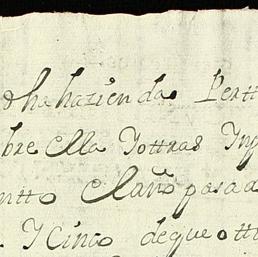 dha hazienda Pertt
bre ella Y ottras Ynp
ntto el año pasad
Y Cinco de que otto